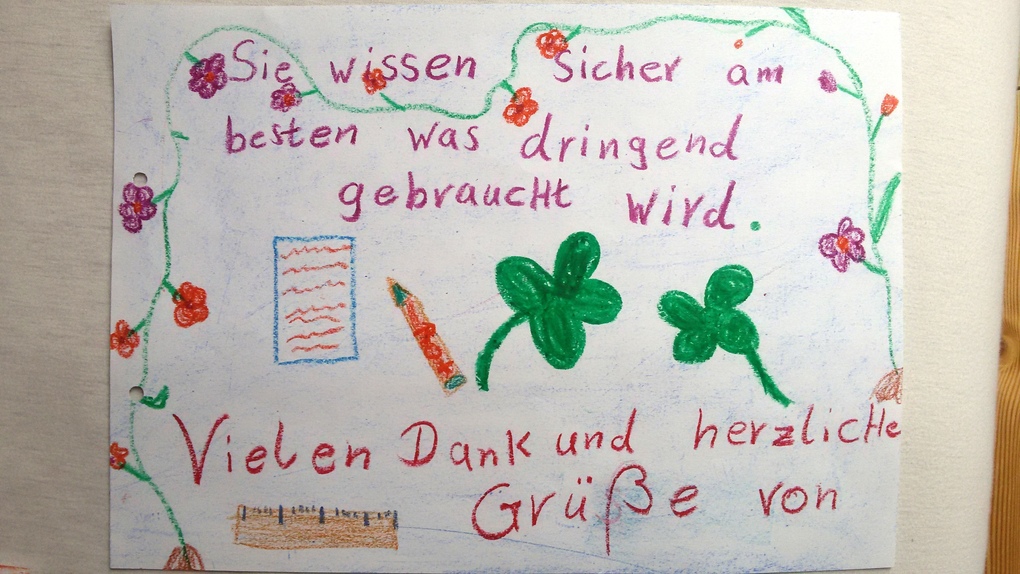 Sie wissen sicher am
besten was dringend
gebraucht wird.
Vielen Dank und herzliche
Grüße von